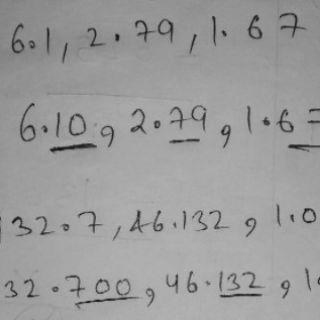 6.1, 2.79, 1.67
6.10, 2.79, 1.67
32.7, 46.132, 1.0
32.700, 46.132, 1.